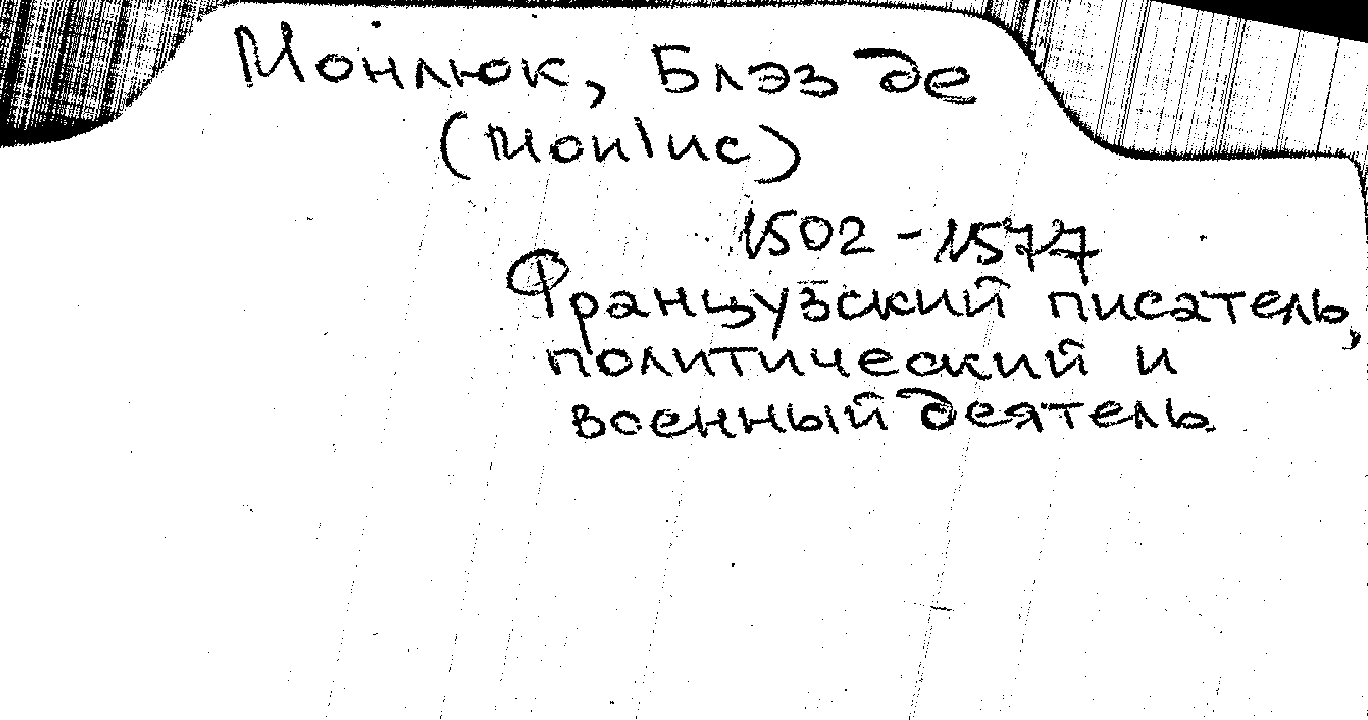 Монлюк, Блэз де
(Monluc)
1502 - 1577
Французский писатель,
политический и
военный деятель